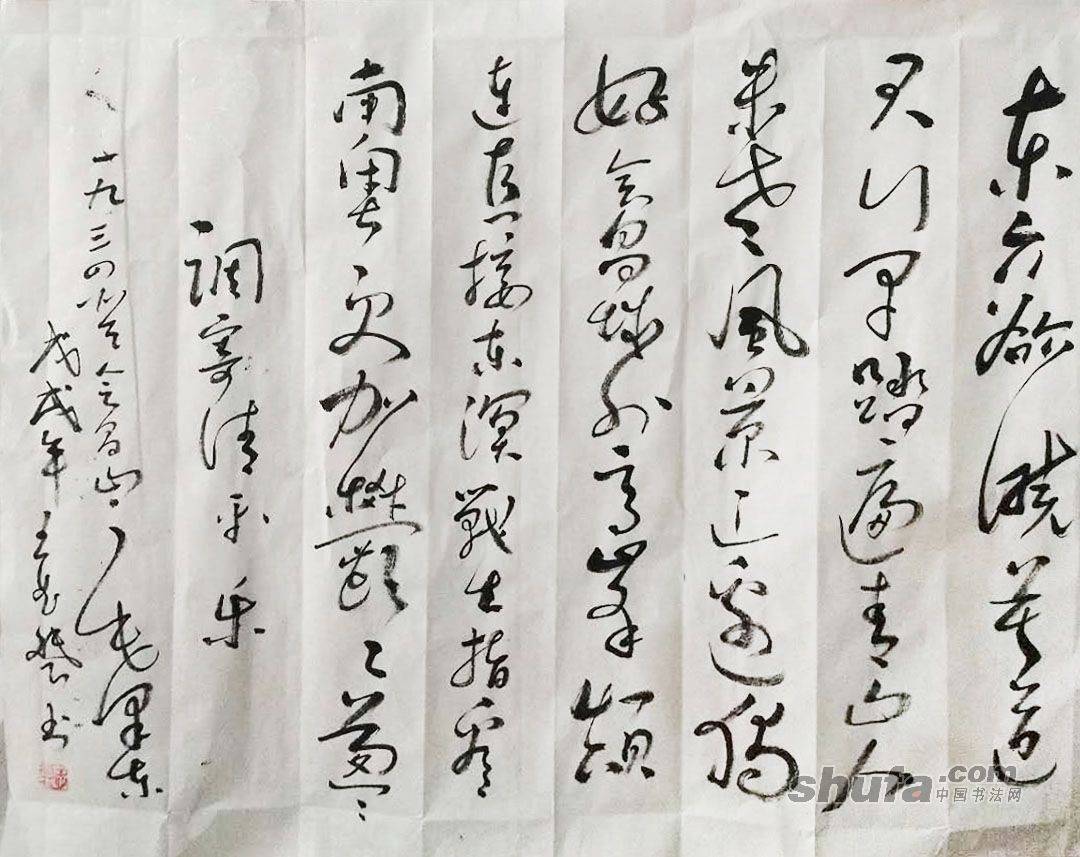 东方欲晓莫道
君行早踏遍青山人
未老々风景这边独
好会昌城外高峰颠
连直接东溟战士指看
南粤更加郁郁葱々
调寄清平乐
一九三四 登会昌山
毛泽东
戊戌年 王 书
shufa.com
中国书法网